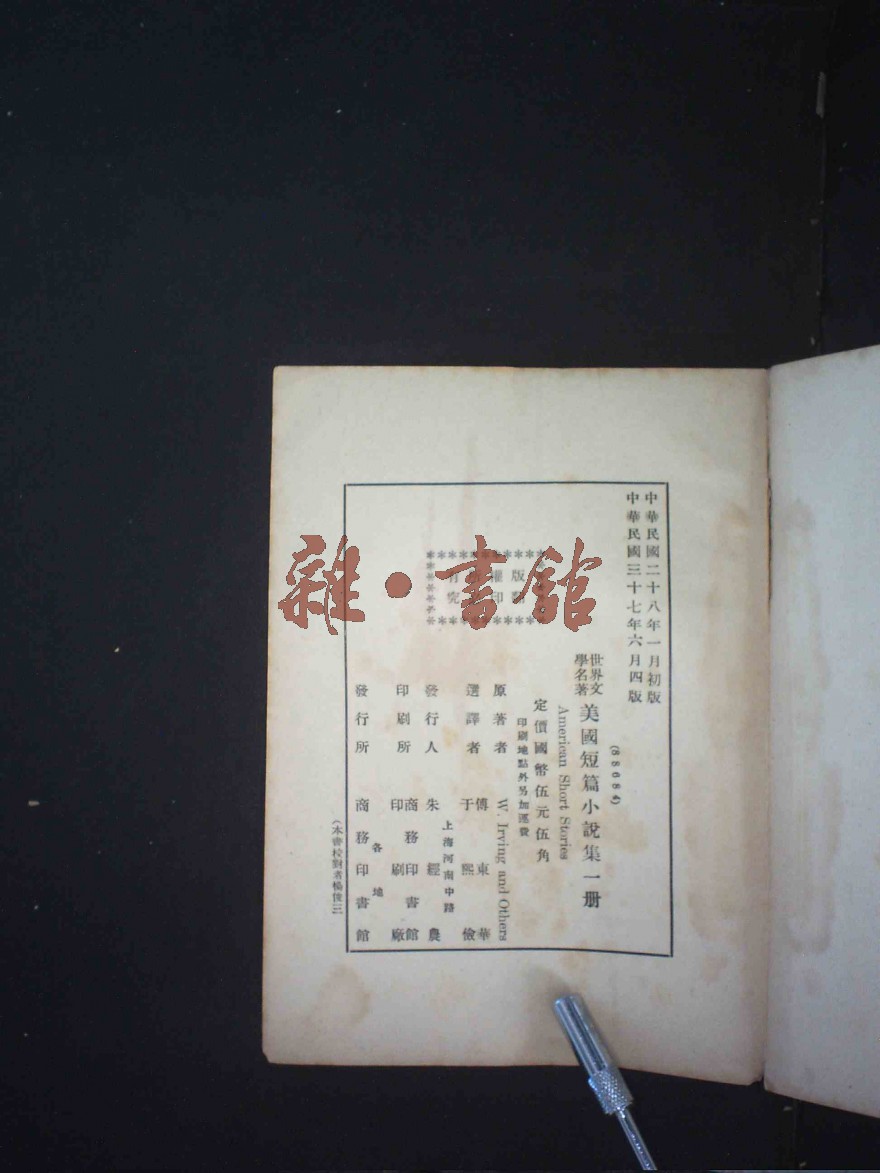 中華民國二十八年一月初版
中華民國三十七年六月四版
(88684)
世界文學名著 美國短篇小說集一册
American Short Stories
定價國幣伍元伍角
印刷地點外另加運費
原著者 W. Irving and Others
選譯者 傅東華 于熙儉
發行人 朱經農
上海河南中路
印刷所 商務印書館印刷廠
發行所 各地 商務印書館
版權印
有究
(本書校對者楊俊三)
雜·書館